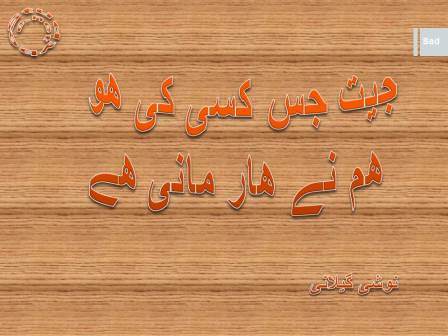 Sad
جیت جس کسی کی ھو
ھم نے ھار مانی ھے
نوشی گیلانی